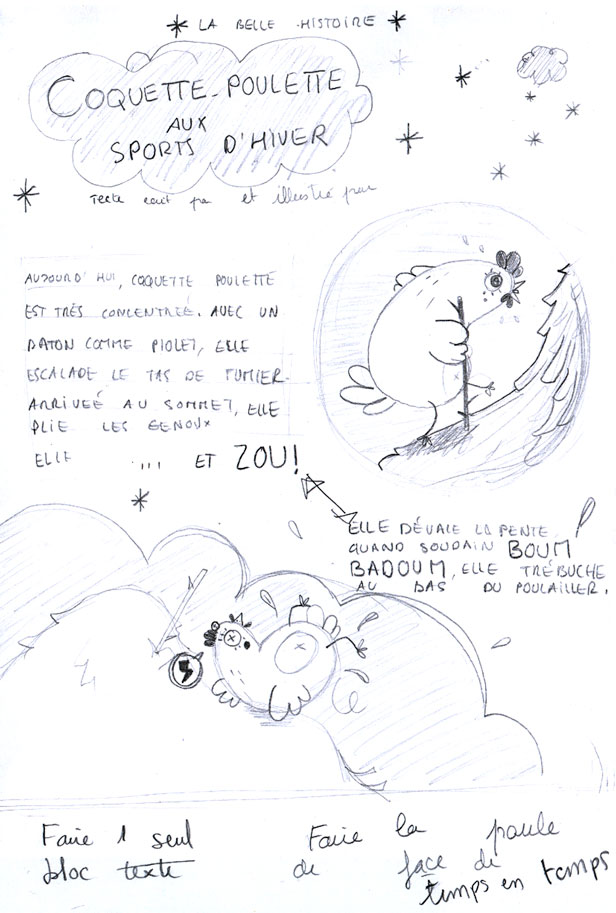 LA BELLE HISTOIRE
COQUETTE-POULETTE
AUX
SPORTS D'HIVER
Texte écrit par et illustré par
AUJOURD'HUI, COQUETTE POULETTE
EST TRÈS CONCENTRÉE. AVEC UN
BATON COMME PIOLET, ELLE
ESCALADE LE TAS DE FUMIER.
ARRIVEÉ AU SOMMET, ELLE
PLIE LES GENOUX
ELLE ... ET ZOU!
ELLE DÉVALE LA PENTE
QUAND SOUDAIN BOUM
BADOUM, ELLE TRÉBUCHE
AU BAS DU POULAILLER.
Faire 1 seul
bloc texte
Faire la poule
de face de
temps en temps